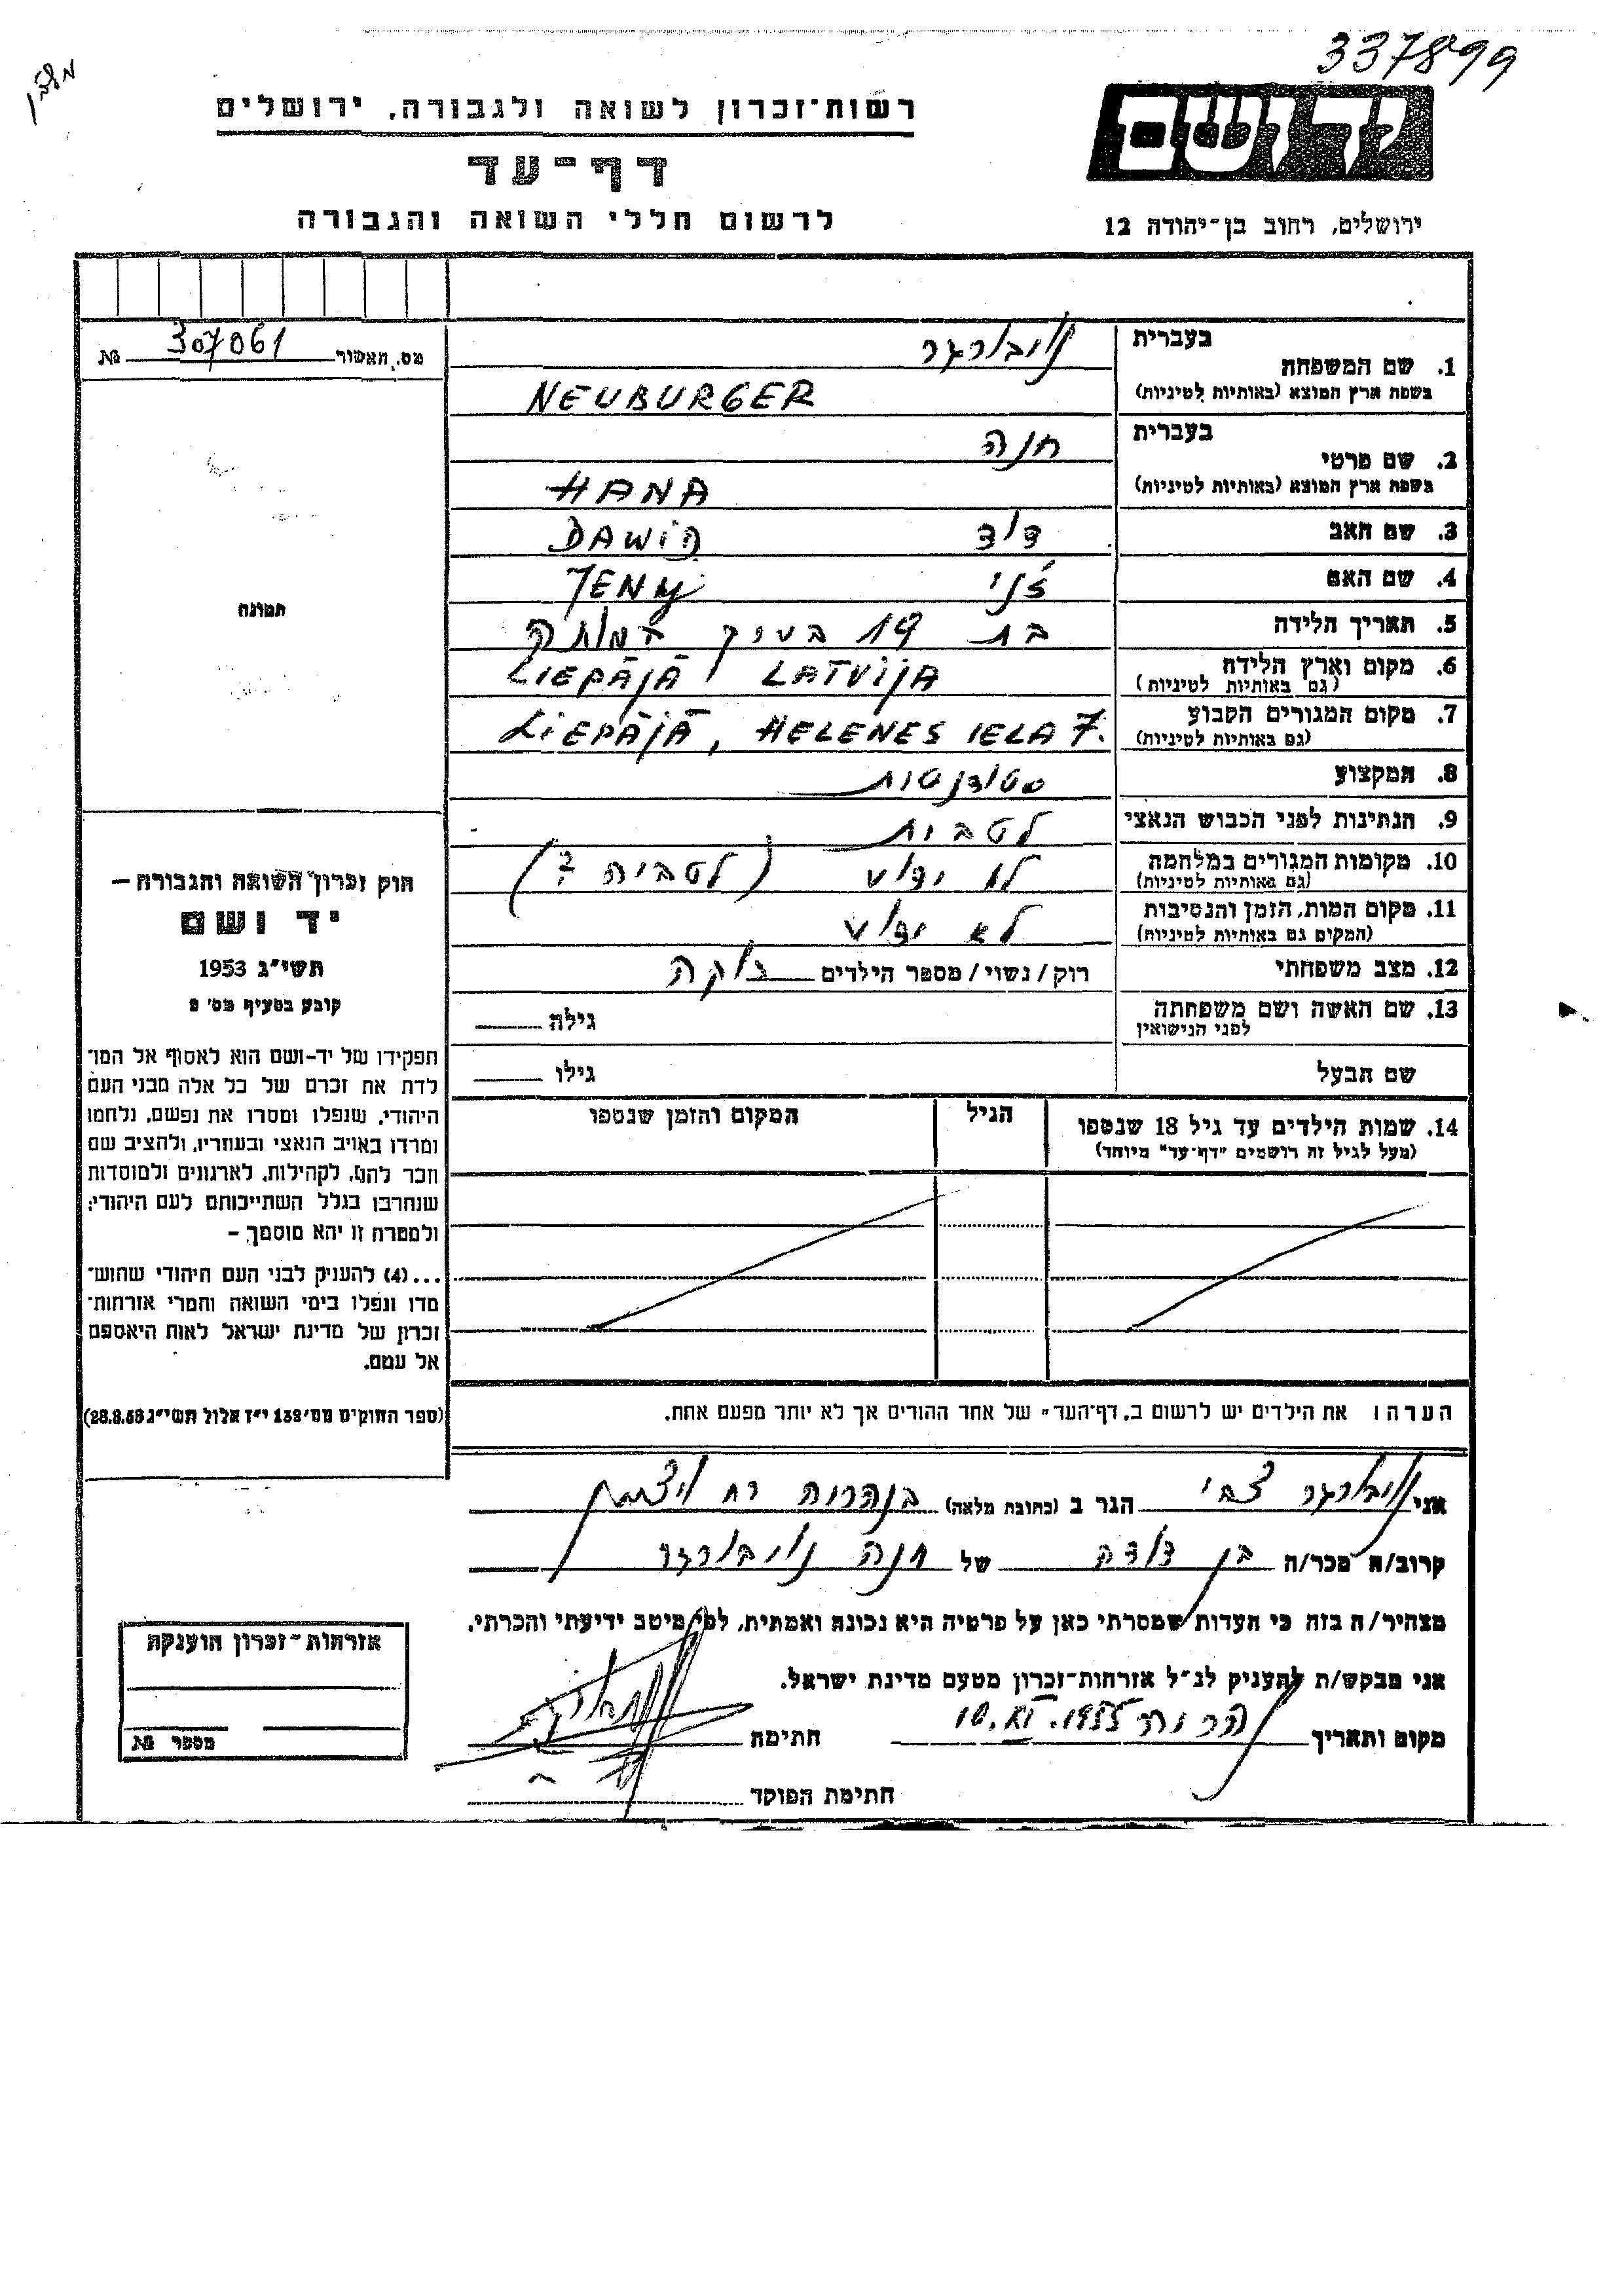 337899
רשות־זכרון לשואה ולגבורה, ירושלים
ד ף ־ ע ד
לרשום חללי השואה והגבורה
ירושלים, רחוב בן־יהודה 12
מס. תאשור 307061 №
בעברית נויבורגר
1. שם המשפחה
בשפת ארץ המוצא (באותיות לטיניות) NEUBURGER
בעברית חנה
2. שם פרטי
בשפת ארץ המוצא (באותיות לטיניות) HANA
3. שם האב דוד DAWID
4. שם האם ז'ני JENNY
5. תאריך הלידה בת 19 בערך
6. מקום וארץ הלידה LIEPĀJĀ LATVIJA
(גם באותיות לטיניות)
7. מקום המגורים הקבוע LIEPĀJĀ, HELENES IELA 7.
(גם באותיות לטיניות)
8. המקצוע סטודנטית
9. הנתינות לפני הכבוש הנאצי לטבית
10. מקומות המגורים במלחמה לא ידוע (לטביה ?)
(גם באותיות לטיניות)
11. מקום המות, הזמן והנסיבות לא ידוע
(המקום גם באותיות לטיניות)
12. מצב משפחתי רוק/נשוי/מספר הילדים רוקה
13. שם האשה ושם משפחתה גילה
לפני הנישואין
שם הבעל גילו
14. שמות הילדים עד גיל 18 שנספו הגיל המקום והזמן שנספו
(מעל לגיל זה רושמים "דף־עד" מיוחד)
תמונה
חוק זכרון השואה והגבורה –
יד ושם
תשי"ג 1953
קובע בסעיף מס' 2
תפקידו של יד-ושם הוא לאסוף אל המו־
לדת את זכרם של כל אלה מבני העם
היהודי, שנפלו ומסרו את נפשם, נלחמו
ומרדו באויב הנאצי ובעוזריו, ולהציב שם
וזכר להם, לקהילות, לארגונים ולמוסדות
שנחרבו בגלל השתייכותם לעם היהודי;
ולמטרה זו יהא מוסמך –
...(4) להעניק לבני העם היהודי שהוש־
מדו ונפלו בימי השואה והמרי אזרחות־
זכרון של מדינת ישראל לאות היאספם
אל עמם.
(ספר החוקים מס' 132 י"ז אלול תשי"ג 28.8.53)
הערה: את הילדים יש לרשום ב„דף־העד" של אחד ההורים אך לא יותר מפעם אחת.
אני נויבורגר צבי הגר ב (כתובת מלאה) בנהריה רח ויצמן
קרוב/ה מכר/ה בן דודה של חנה נויבורגר
מצהיר/ה בזה כי העדות שמסרתי כאן על פרטיה היא נכונה ואמתית, לפי מיטב ידיעתי והכרתי.
אני מבקש/ת להעניק לנ"ל אזרחות־זכרון מטעם מדינת ישראל.
מקום ותאריך 10.XI.1955 חתימה
חתימת הפוקד
אזרחות־זכרון הוענקה
מספר №